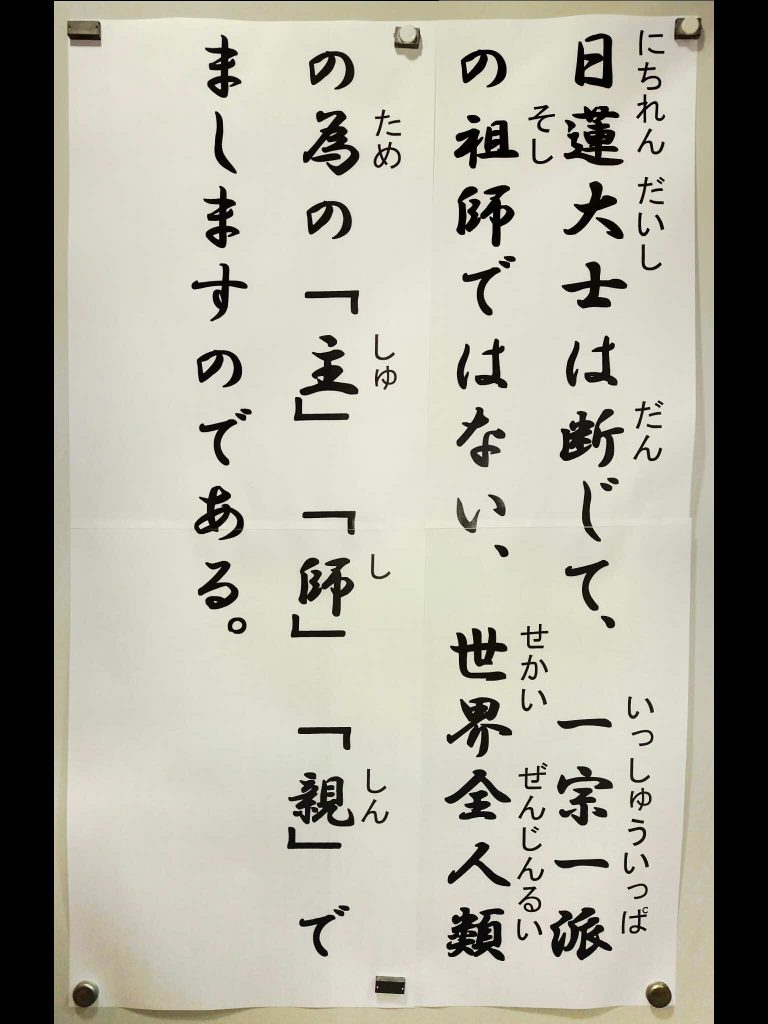 日蓮大士は断じて、　一宗一派
にちれん だいし だん いっしゅういっぱ
の祖師ではない、　世界全人類
そし せかい ぜんじんるい
の為の「主」「師」「親」で
ため しゅ し しん
ましますのである。